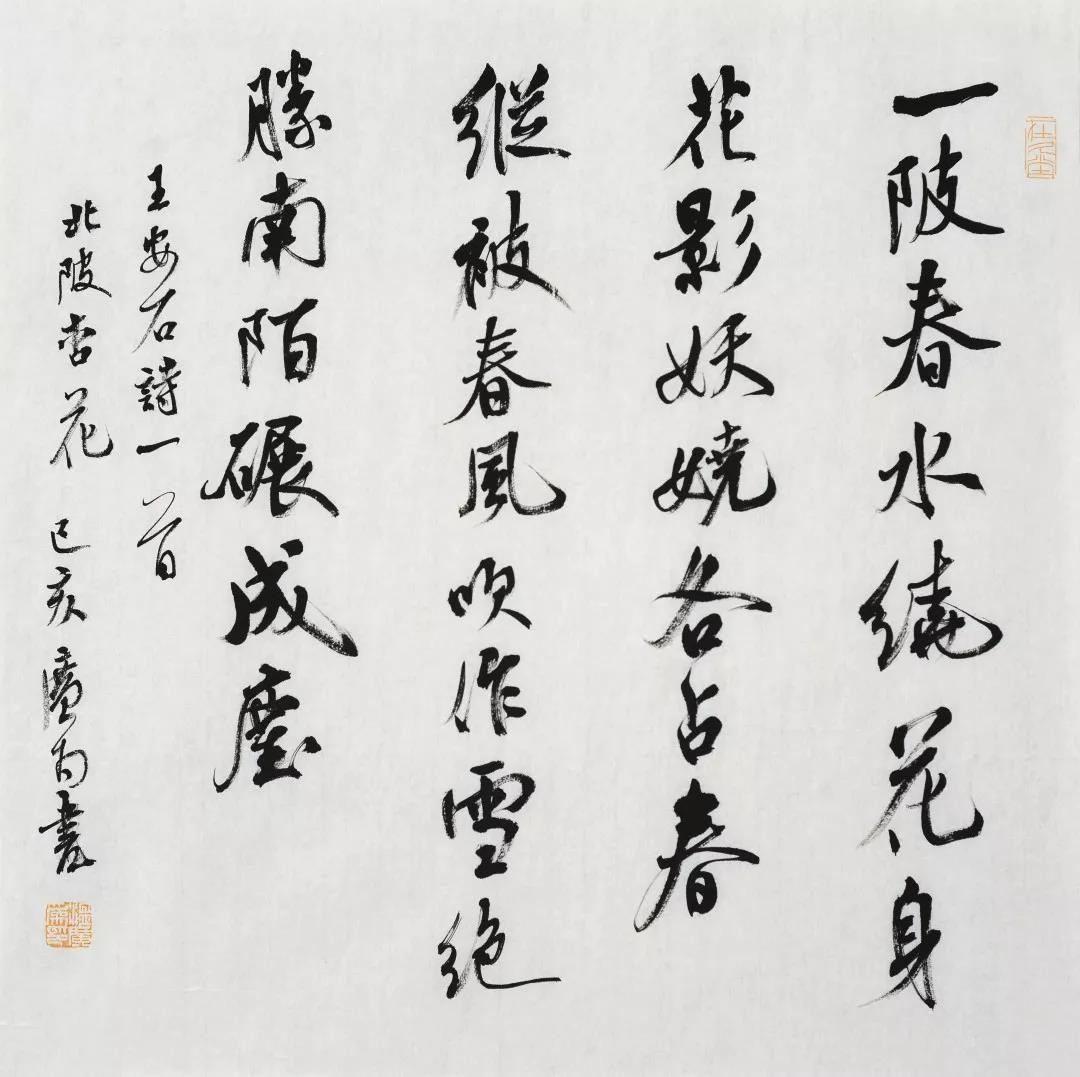 一陂春水繞花身
花影妖嬈各占春
縱被春風吹作雪絕
勝南陌碾成塵
王安石詩一首
北陂杏花 己亥廣向書